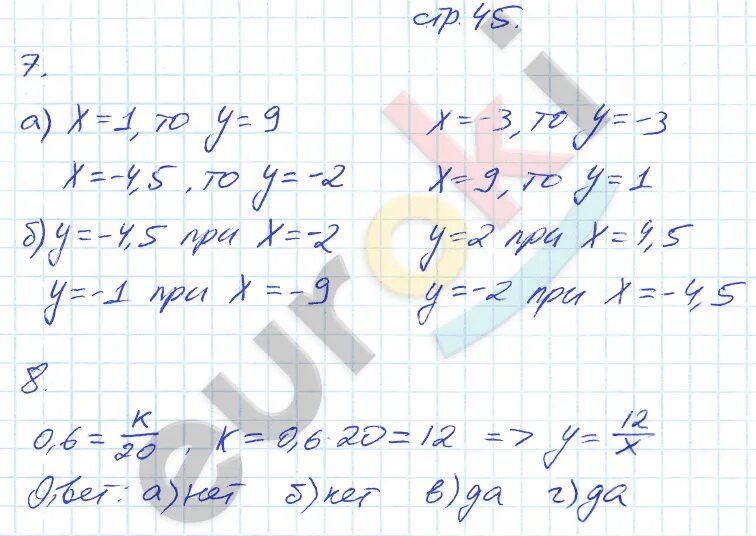 стр. 45.
7.
а) x=1, то y=9 x=-3, то y=-3
x=-4,5, то y=-2 x=9, то y=1
б) y=-4,5 при x=-2 y=2 при x=4,5
y=-1 при x=-9 y=-2 при x=-4,5
8.
0,6=к/20, к=0,6·20=12 => y=12/x
Ответ: а) нет б) нет в) да г) да
euroki